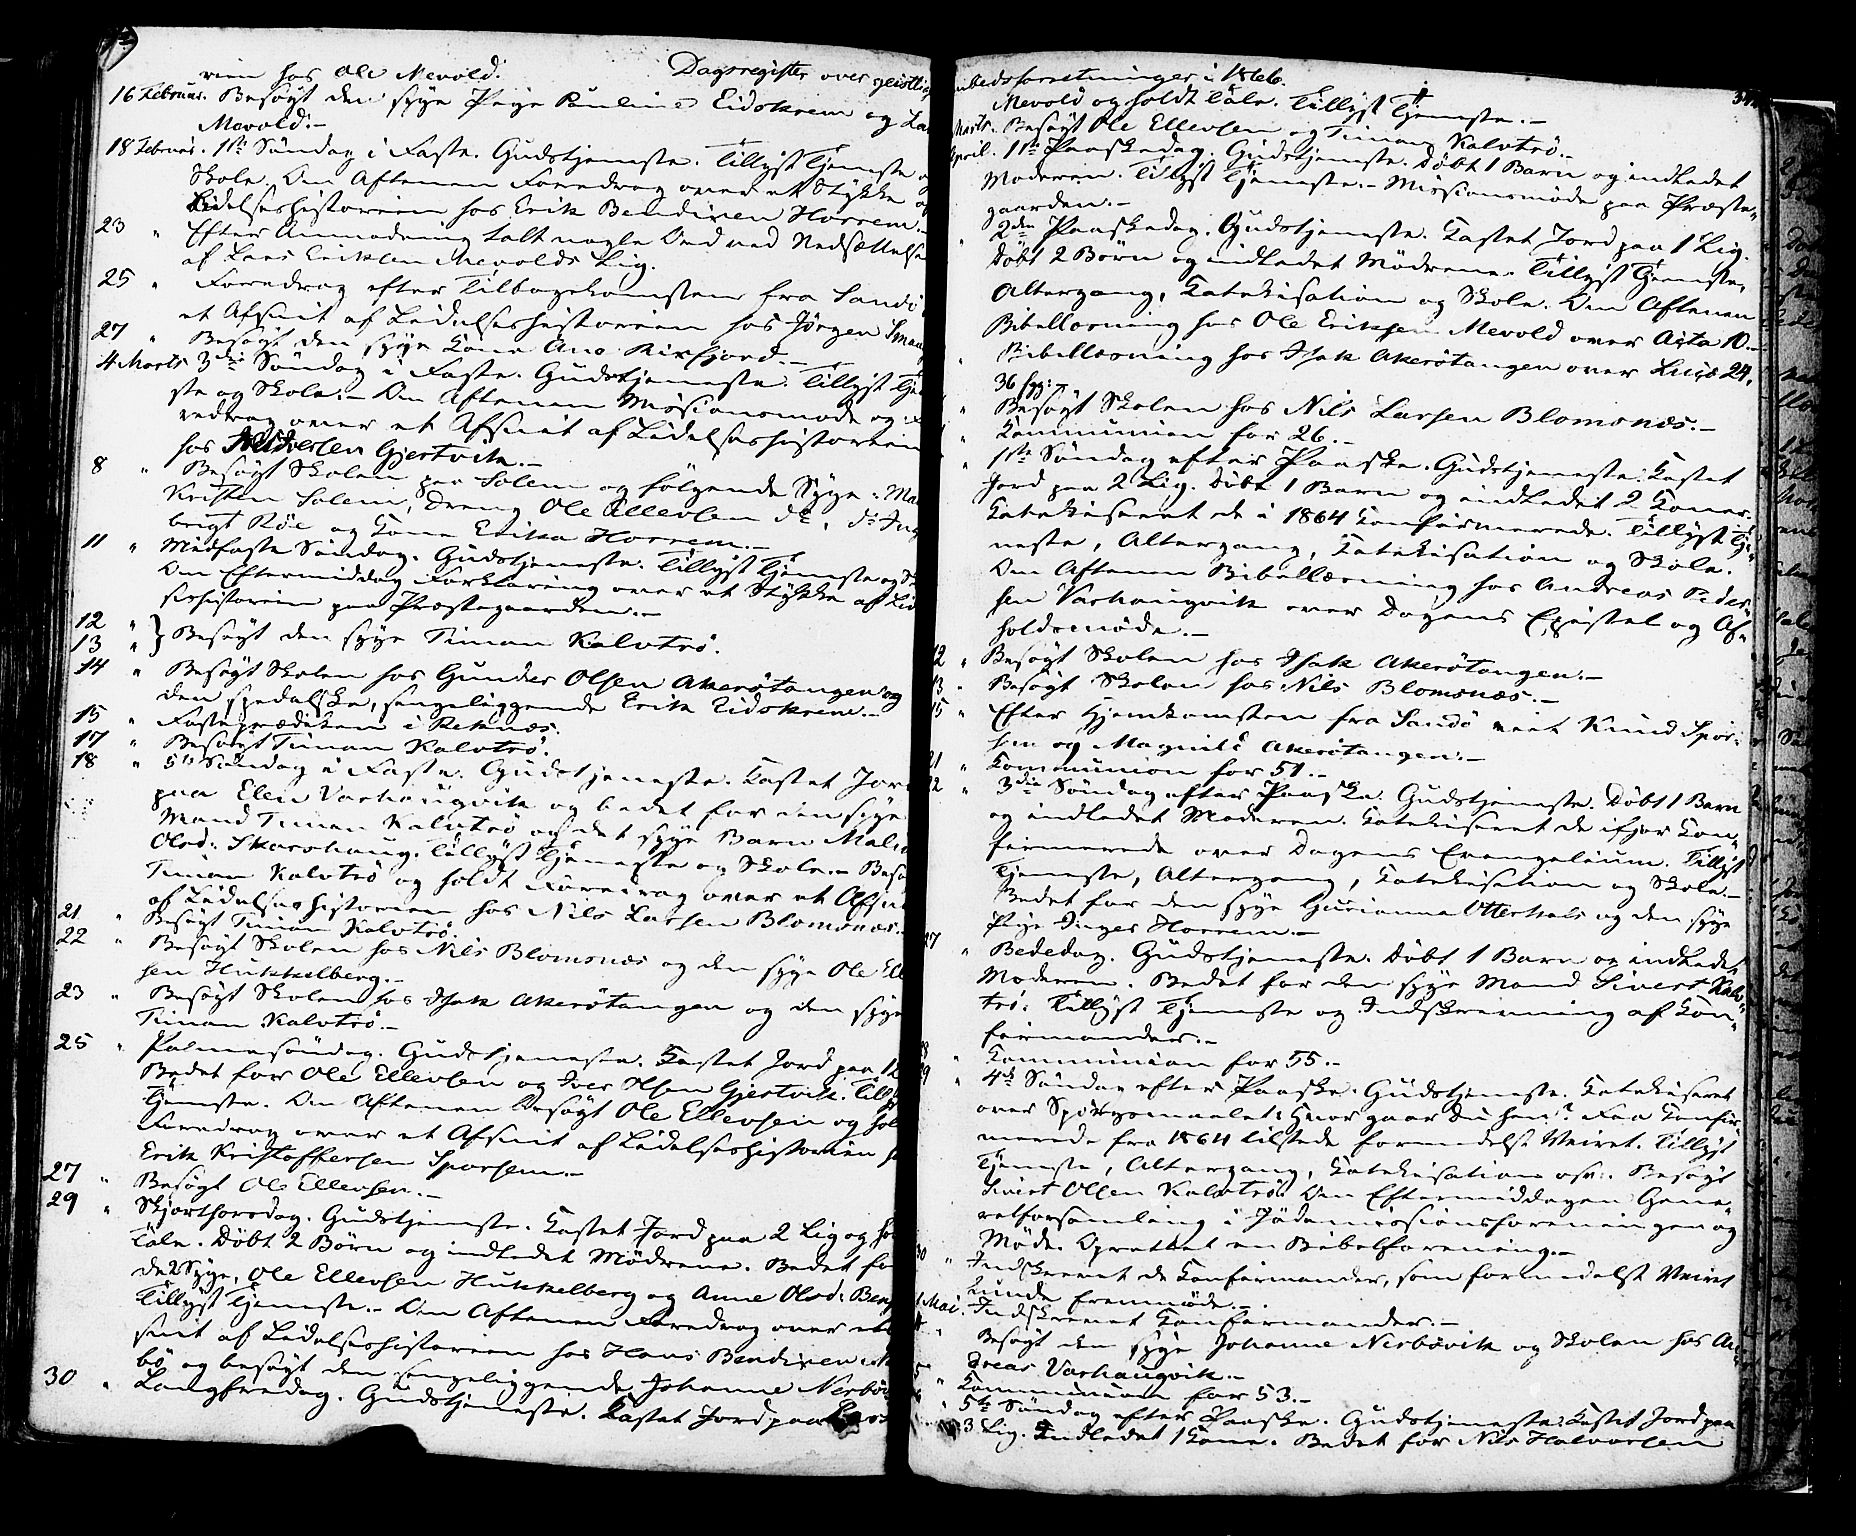 Dagsregister over geistlige
rien hos Ole Mevold.
16 Februar. Besøgt den syge Pige Pauline Eidskrem og
Mevold.-
18 Februar. 1ste Søndag i Faste. Gudstjeneste. Tillyst Tjeneste
Skole. Om Aftenen Foredrag over et Stykke
Lidelseshistorien hos Erik Bendixen Horrem.-
23 " Efter Anmodning talt nogle Ord ved Nedsættelsen
af Lars Eriksen Mevolds Lig.
25 " Foredrag efter Tilbagekomsten fra Sandø
et Afsnit af Lidelseshistorien hos Jørgen
27 " Besøgt den syge Kone Ano.-
4 Marts 3die Søndag i Faste. Gudstjeneste. Tillyst Tjene
ste og Skole.- Om Aftenen Missionsmøde og
redrag over et Afsnit af Lidelseshistorien
hos Gjertvik.-
8 " Besøgt Skolen paa Solem og følgende Syge:
Kristen Solem, Dreng Ole Ellevsen
brigt Röe og Kone Erika Horrem.-
11 " Midfaste Søndag. Gudstjeneste. Tillyst Tjeneste og
Om Eftermiddag Forklaring over et Stykke af Lid
seshistorien paa Præstegaarden.-
12 "
13 " } Besøgt den syge Timan Kalvtrö.
14 " Besøgt Skolen hos Gunder Olsen Akerötangen og
den spedalske, sengeliggende Erik Eidskrem.-
15 " Fasteprædiken i Reknæs.
17 " Besøgt Timan Kalvtrö.
18 " 5te Søndag i Faste. Gudstjeneste. Kastet Jord
paa Elen Varhaugvik og bedet for den syge
Mand Timan Kalvtrö og det syge Barn
Olsd. Skarshaug. Tillyst Tjeneste og Skole.- Besø
Timan Kalvtrö og holdt Foredrag over et Afsnit
af Lidelseshistorien hos Nils Larsen Blomsnæs.
21 " Besøgt Timan Kalvtrö.
22 " Besøgt Skolen hos Nils Blomsnæs og den syge Ole Elle
sen Hukkelberg.-
23 " Besøgt Skolen hos Isak Akerötangen og den syge
Timan Kalvtrö.-
25 " Palmesøndag. Gudstjeneste. Kastet Jord paa 1
Bedet for Ole Ellevsen og Iver Olsen Gjertvik.
Tjeneste. Om Aftenen Besøgt Ole Ellevsen og
Foredrag over et Afsnit af Lidelseshistorien
Erik Kristoffersen Sporsem.-
27 " Besøgt Ole Ellevsen.-
29 " Skjærthorsdag. Gudstjeneste. Kastet Jord paa 2 Lig og
Tale. Døbt 2 Børn og indledet Mødrene. Bedet for
de 2 Syge, Ole Ellevsen Hukkelberg og Anne Olsd.
Tillyst Tjeneste.- Om Aftenen Foredrag over et
snit af Lidelseshistorien hos Hans Bendixen
bö og besøgt den sengeliggende Johanne
30 " Langfredag. Gudstjeneste. Kastet Jord paa
mbedsforretninger i 1866.
Mevold og holdt Tale. Tillyst Tjeneste.-
Marts. Besøgt Ole Ellevsen og Timan Kalvtrö.-
April. 1ste Paaskedag. Gudstjeneste. Døbt 1 Barn og indledet
Moderen. Tillyst Tjeneste.- Missionsmøde paa Præste-
gaarden.-
" 2den Paaskedag. Gudstjeneste. Kastet Jord paa 1 Lig.
Døbt 2 Børn og indledet Mødrene. Tillyst Tjeneste,
Altergang, Katekisation og Skole. Om Aftenen
Bibellæsning hos Ole Eriksen Mevold over Acta 10.-
" Bibellæsning hos Isak Akerötangen over Lucæ 24,
36 fgg.
" Besøgt Skolen hos Nils Larsen Blomsnæs.-
" Kommunion for 26.-
" 1ste Søndag efter Paaske. Gudstjeneste. Kastet
Jord paa 2 Lig. Døbt 1 Barn og indledet 2 Koner.
Katekiseret de i 1864 Konfirmerede. Tillyst Tje-
neste, Altergang, Katekisation og Skole.
Om Aftenen Bibellæsning hos Andreas Peder-
sen Varhaugvik over Dagens Epistel og Af-
holdsmøde.-
12 " Besøgt Skolen hos Isak Akerötangen.-
13 " Besøgt Skolen hos Nils Blomsnæs.-
15 " Efter Hjemkomsten fra Sandö viet Knud Spor-
sem og Magnild Akerötangen.-
21 " Kommunion for 51.-
22 " 3die Søndag efter Paaske. Gudstjeneste. Døbt 1 Barn
og indledet Moderen. Katekiseret de ifjor Kon-
firmerede over Dagens Evangelium. Tillyst
Tjeneste, Altergang, Katekisation og Skole.-
Bedet for den syge Gurianna Otterhals og den syge
Pige Inger Horrem.-
27 " Bededag. Gudstjeneste. Døbt 1 Barn og indledet
Moderen. Bedet for den syge Mand Sivert Kalv-
trö. Tillyst Tjeneste og Indskrivning af Kon-
firmander.-
28 " Kommunion for 55.-
29 " 4de Søndag efter Paaske. Gudstjeneste. Katekiseret
over Spørgsmaalet: Hvor gaar du hen? Faa Konfir-
merede fra 1864 tilstede formedelst Veiret. Tillyst
Tjeneste, Altergang, Katekisation osv. Besøgt
Sivert Olsen Kalvtrö. Om Eftermiddagen Gene-
ralforsamling i Jødemissionsforeningen og
Møde. Oprettet en Bibelforening.-
30 " Indskrevet de Konfirmander, som formedelst Veiret
kunde fremmøde.-
1 Mai. Indskrevet Konfirmander.-
4 " Besøgt den syge Johanne Nerbövik og Skolen hos An-
dreas Varhaugvik.-
5 " Kommunion for 53.-
6 " 5te Søndag efter Paaske. Gudstjeneste. Kastet Jord paa
3 Lig. Indledet 1 Kone. Bedet for Nils Halvorsen